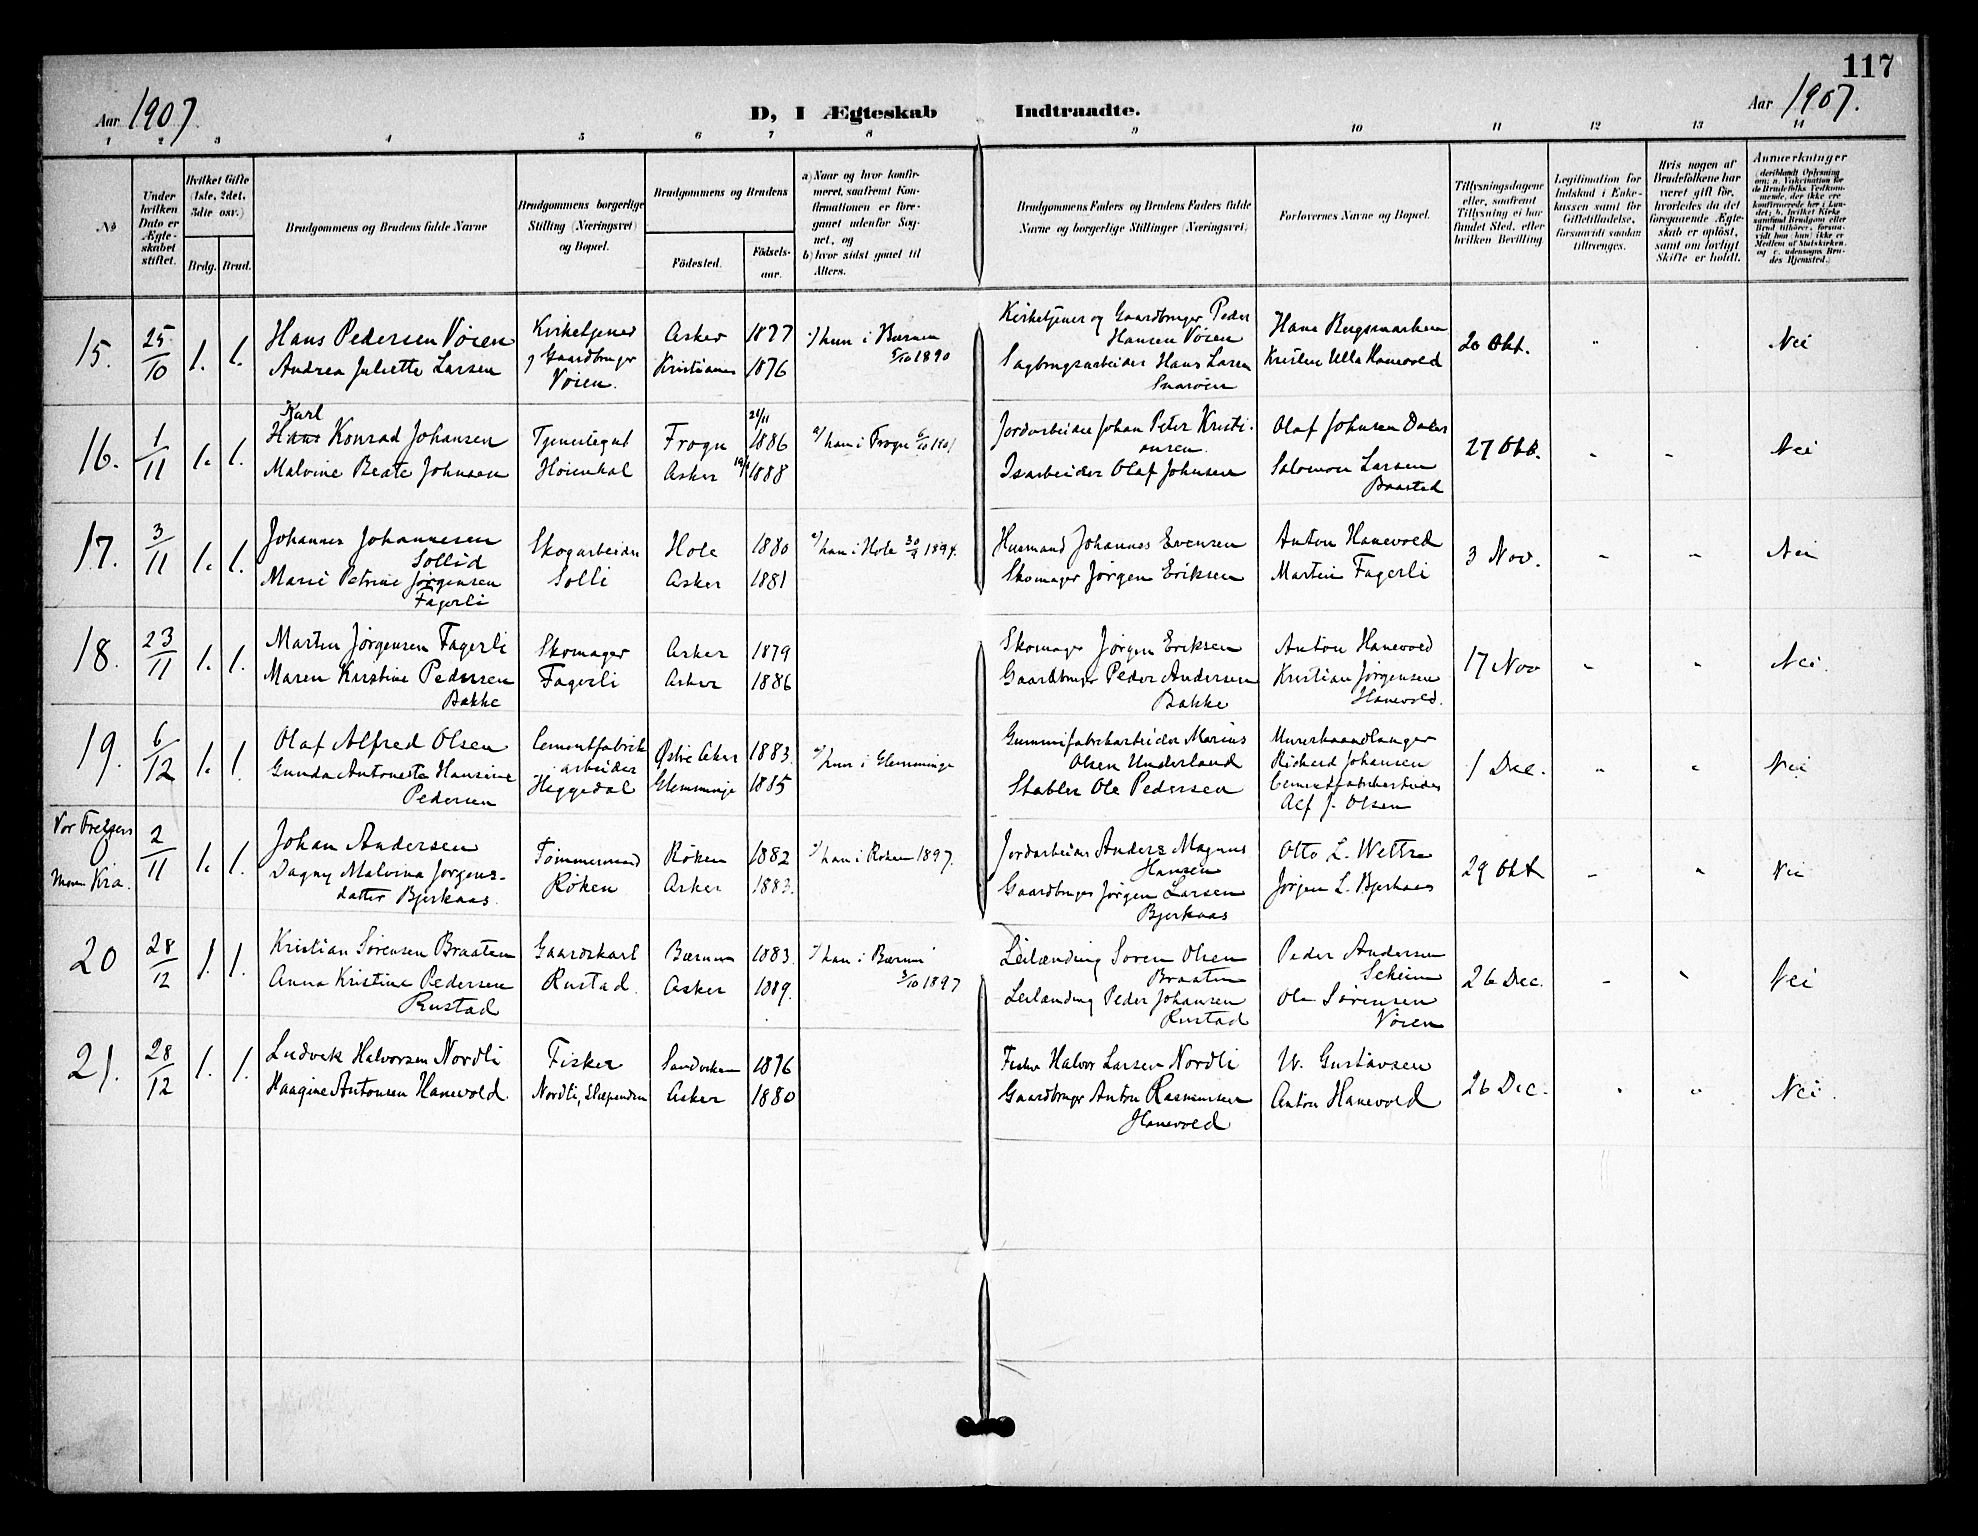 117
Aar 1907
D, I Ægteskab Indtraadte.
Aar 1907.
1 2 3 4 5 6 7 8 9 10 11 12 13 14
No
Under hvilken Dato er Ægteskabet stiftet.
Hvilket Gifte (1ste, 2det, 3die osv.)
Brdg. Brud.
Brudgommens og Brudens fulde Navne
Brudgommens borgerlige Stilling (Næringsvei) og Bopæl.
Brudgommens og Brudens
Fødested.
Fødselsaar.
a) Naar og hvor konfirmeret, saafremt Konfirmationen er foregaaet udenfor Sognet, og
b) hvor sidst gaaet til Alters.
Brudgommens Faders og Brudens Faders fulde Navne og borgerlige Stillinger (Næringsvei)
Forlovernes Navne og Bopæl.
Tillysningsdagene eller, saafremt Tillysning ei har fundet Sted, efter hvilken Bevilling
Legitimation for Indskud i Enkekassen samt for Giftetilladelse, forsaavidt saadan tiltrænges.
Hvis nogen af Brudefolkene har været gift før, hvorledes da det foregaaende Ægteskab er opløst, samt om lovligt Skifte er holdt.
Anmerkninger
15. 25/10 1. 1.
Hans Pedersen Vøien
Andrea Juliette Larsen
Kirketjener
og Gaardbruger
Vøien.
Asker 1877
Kristiania 1876
hun i Bærum
5/10 1890
Kirketjener og Gaardbruger Peder
Hansen Vøien
Sagbrugsarbeider Hans Larsen
Snarøen
Hans Bergsmarken
Kristen Ulla Hanevold
20 Okt. " . Nei
16. 1/11 1. 1.
Karl
Hans Konrad Johansen
Malvine Beate Johnsen
Tjenestegut
Høienhal
Frogn 21/11 1886
Asker 19/1 1888
a/ han i Frogn 6/10 1901
Jordarbeider Johan Peter Kristi-
ansen.
Isarbeider Olaf Johnsen
Olaf Johnsen
Salomon Larsen
Baastad
27 Okt. " " Nei
17. 3/11 1. 1.
Johannes Johannesen
Sollid
Marie Petrine Jørgensen
Fagerli
Skogarbeider
Solli
Hole 1880
Asker 1881
a/ han i Hole 30/9 1894.
Husmand Johannes Evensen
Skomager Jørgen Eriksen
Anton Hanevold
Martin Fagerli
3 Nov. " " Nei
18. 23/11 1. 1.
Martin Jørgensen Fagerli
Maren Karstine Pedersen
Bakke
Skomager
Fagerli
Asker 1879
Asker 1886
Skomager Jørgen Eriksen
Gaardbruger Peder Andersen
Bakke
Anton Hanevold
Kristian Jørgensen
Hanevold.
17 Nov " " Nei.
19. 6/12 1. 1.
Olaf Alfred Olsen
Gunda Antonette Hansine
Pedersen
Cementfabrik
arbeider
Heggedal
Østre Aker 1883.
Glemminge 1885
a/ hun i Glemminge
Gummifabrikarbeider Marius
Olsen Underland
Stabler Ole Pedersen
Murerhaandlanger
Richard Johansen
Cementfabrikarbeider
Alf J. Olsen
1 Dec. " " Nei
Vor Frelsers
Kra. 2/11 1. 1.
Johan Andersen
Dagny Malvina Jørgens-
datter Bjerkaas.
Tømmermand
Røken
Røken 1882
Asker 1883.
a/ han i Røken 1897.
Jordarbeider Anders Magnus
Hansen
Gaardbruger Jørgen Larsen
Bjerkaas
Otto L. Wettre
Jørgen L. Bjerkaas
29 Okt " " Nei
20 28/12 1. 1.
Kristian Sørensen Braaten
Anna Kristine Pedersen
Rustad
Gaardskarl
Rustad.
Bærum 1883.
Asker 1889.
a/ han i Bærum
3/10 1897
Leilænding Søren Olsen
Braaten
Leilænding Peder Johansen
Rustad
Peder Andersen
Ole Sørensen
Vøien
26 Dec. " " Nei
21. 28/12 1. 1.
Ludvik Halvorsen Nordli
Haagine Antonsen Hanevold.
Fisker
Nordli, Slæpenden
Sandviken 1876
Asker 1880
Fisker Halvor Larsen Nordli
Gaardbruger Anton Rasmussen
Hanevold
W. Gustavsen
Anton Hanevold
26 Dec. " " Nei.